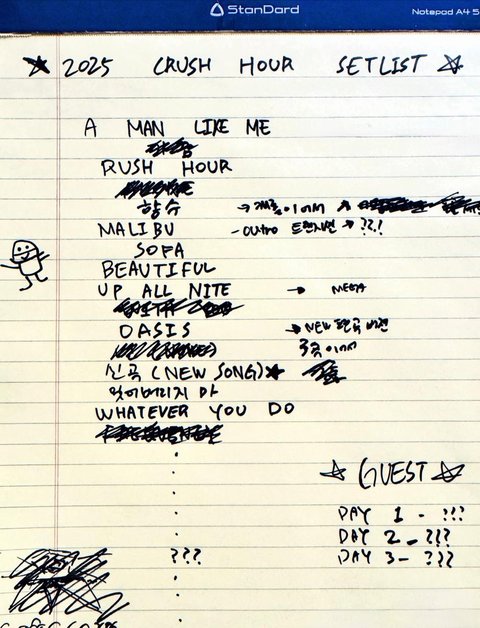 StanDard
Notepad A4 5
★ 2025 CRUSH HOUR SETLIST ☆
A MAN LIKE ME
RUSH HOUR
향수 → 이어서
MALIBU - outro → ??!
SOFA
BEAUTIFUL
UP ALL NITE →
OASIS → NEW 버전
신곡 (NEW SONG) ★ 이어서
잊어버리지 마
WHATEVER YOU DO
☆ GUEST ☆
DAY 1 - ???
DAY 2 - ???
??? DAY 3 - ???